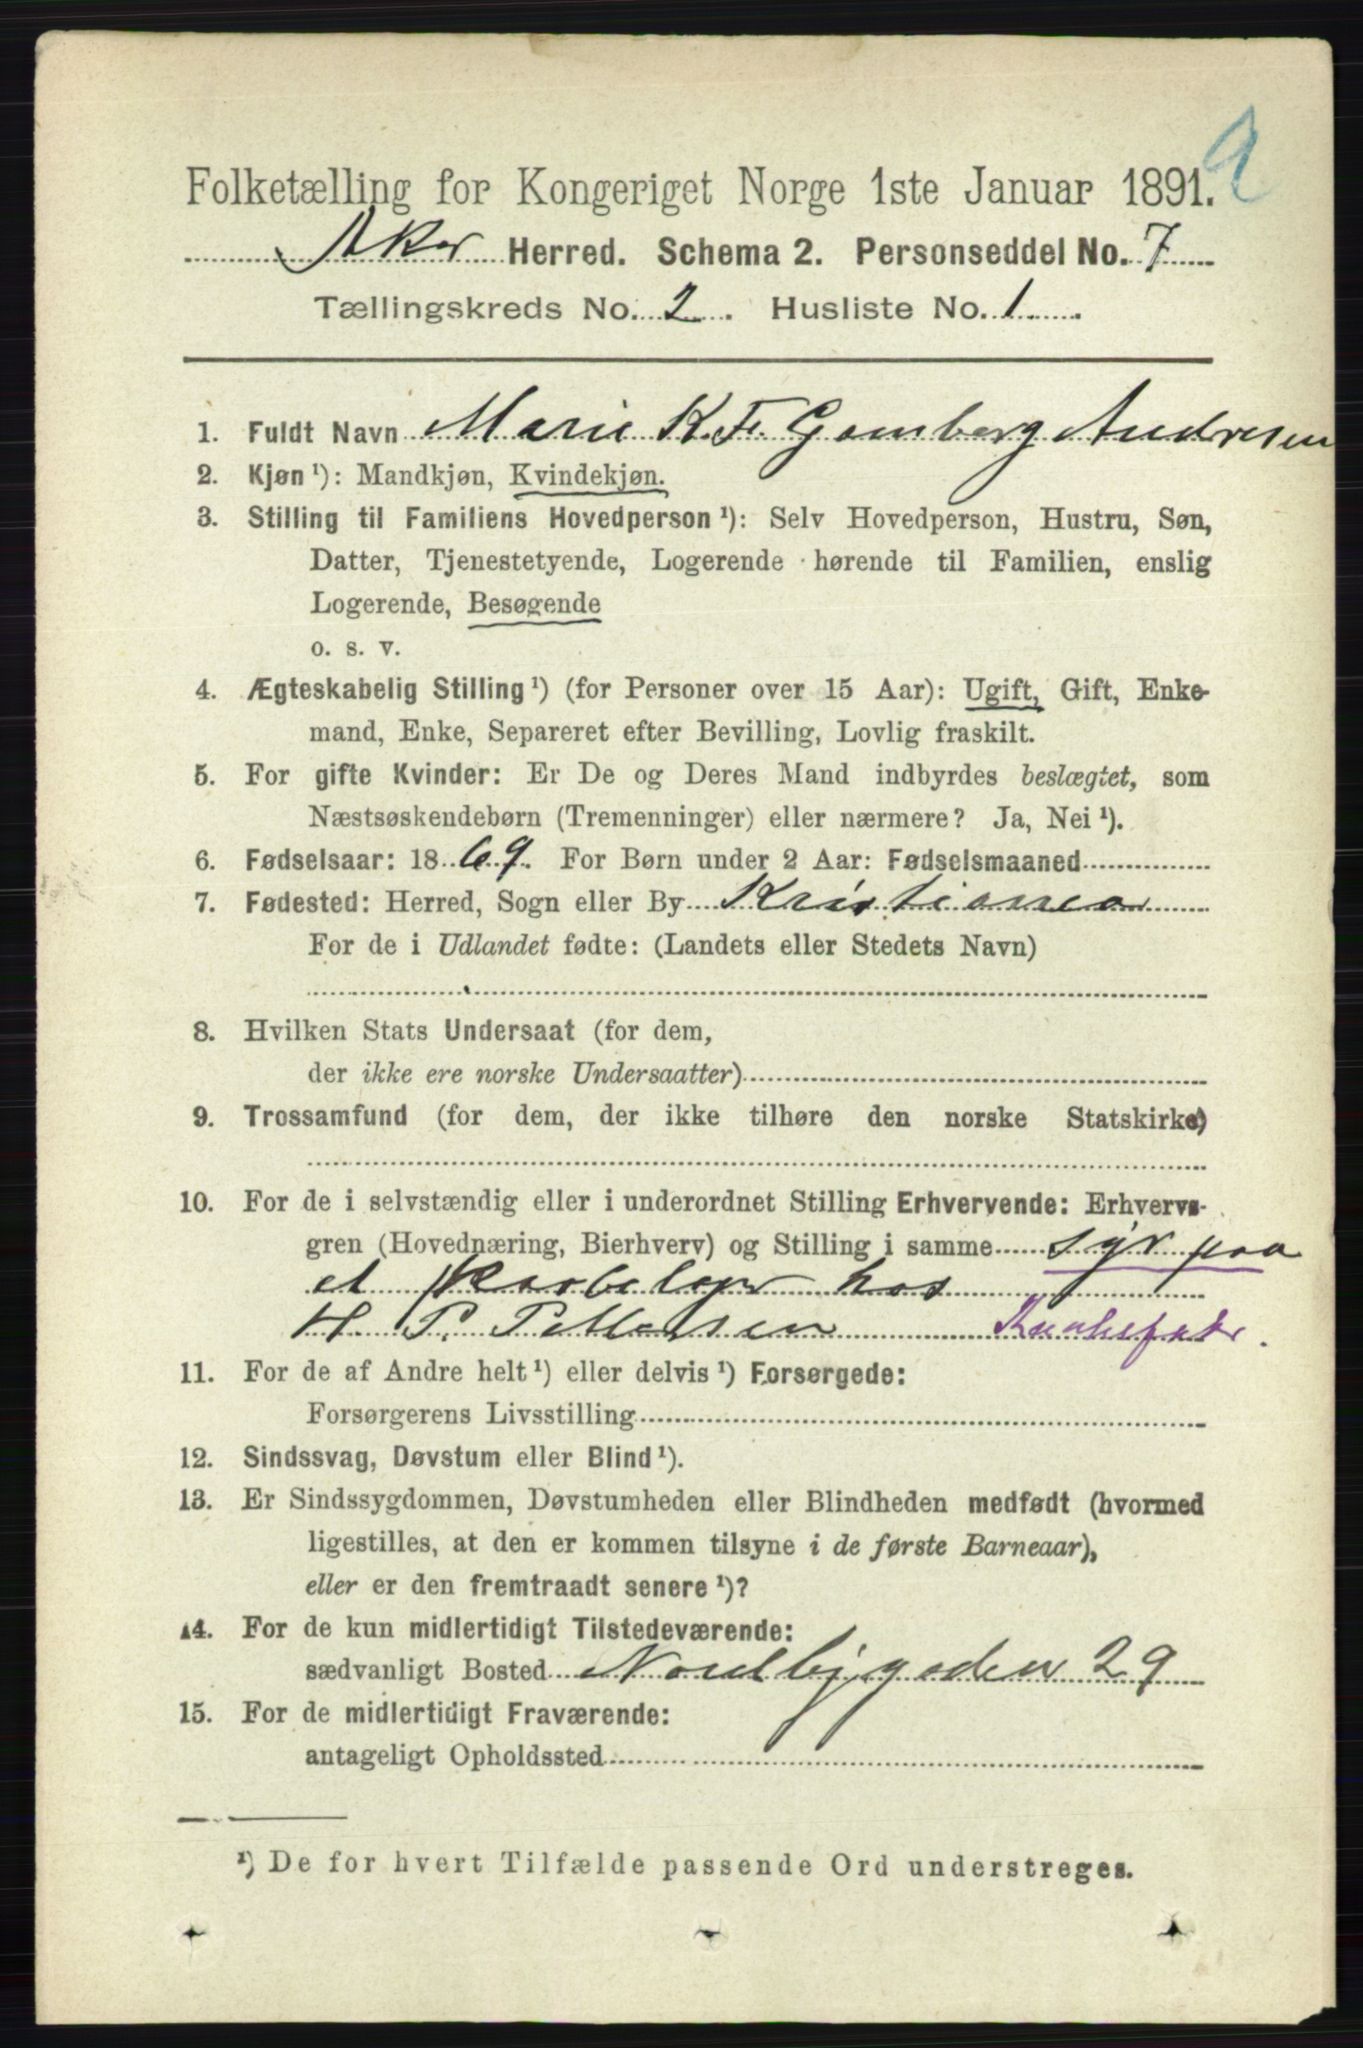 9
Folketælling for Kongeriget Norge 1ste Januar 1891.
Aker Herred. Schema 2. Personseddel No. 7
Tællingskreds No. 2. Husliste No. 1
1. Fuldt Navn Marie K. F. Gamborg Andresen
2. Kjøn ¹): Mandkjøn, Kvindekjøn.
3. Stilling til Familiens Hovedperson ¹): Selv Hovedperson, Hustru, Søn,
Datter, Tjenestetyende, Logerende hørende til Familien, enslig
Logerende, Besøgende
o. s. v.
4. Ægteskabelig Stilling ¹) (for Personer over 15 Aar): Ugift, Gift, Enke-
mand, Enke, Separeret efter Bevilling, Lovlig fraskilt.
5. For gifte Kvinder: Er De og Deres Mand indbyrdes beslægtet, som
Næstsøskendebørn (Tremenninger) eller nærmere? Ja, Nei ¹).
6. Fødselsaar: 1869. For Børn under 2 Aar: Fødselsmaaned
7. Fødested: Herred, Sogn eller By Kristiania
For de i Udlandet fødte: (Landets eller Stedets Navn)
8. Hvilken Stats Undersaat (for dem,
der ikke ere norske Undersaatter)
9. Trossamfund (for dem, der ikke tilhøre den norske Statskirke)
10. For de i selvstændig eller i underordnet Stilling Erhvervende: Erhvervs-
gren (Hovednæring, Bierhverv) og Stilling i samme syr paa
et hos
H. P. Pettersen
11. For de af Andre helt ¹) eller delvis ¹) Forsørgede:
Forsørgerens Livsstilling
12. Sindssvag, Døvstum eller Blind ¹).
13. Er Sindssygdommen, Døvstumheden eller Blindheden medfødt (hvormed
ligestilles, at den er kommen tilsyne i de første Barneaar),
eller er den fremtraadt senere ¹)?
14. For de kun midlertidigt Tilstedeværende:
sædvanligt Bosted Nordbygaden 29
15. For de midlertidigt Fraværende:
antageligt Opholdssted
¹) De for hvert Tilfælde passende Ord understreges.